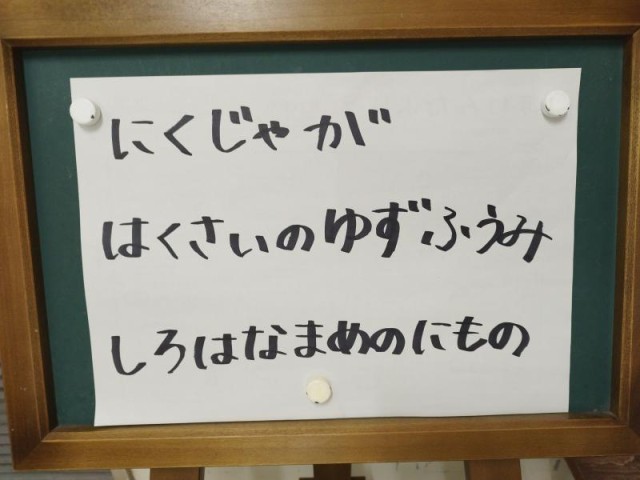 にくじゃが
はくさいのゆずふうみ
しろはなまめのにもの